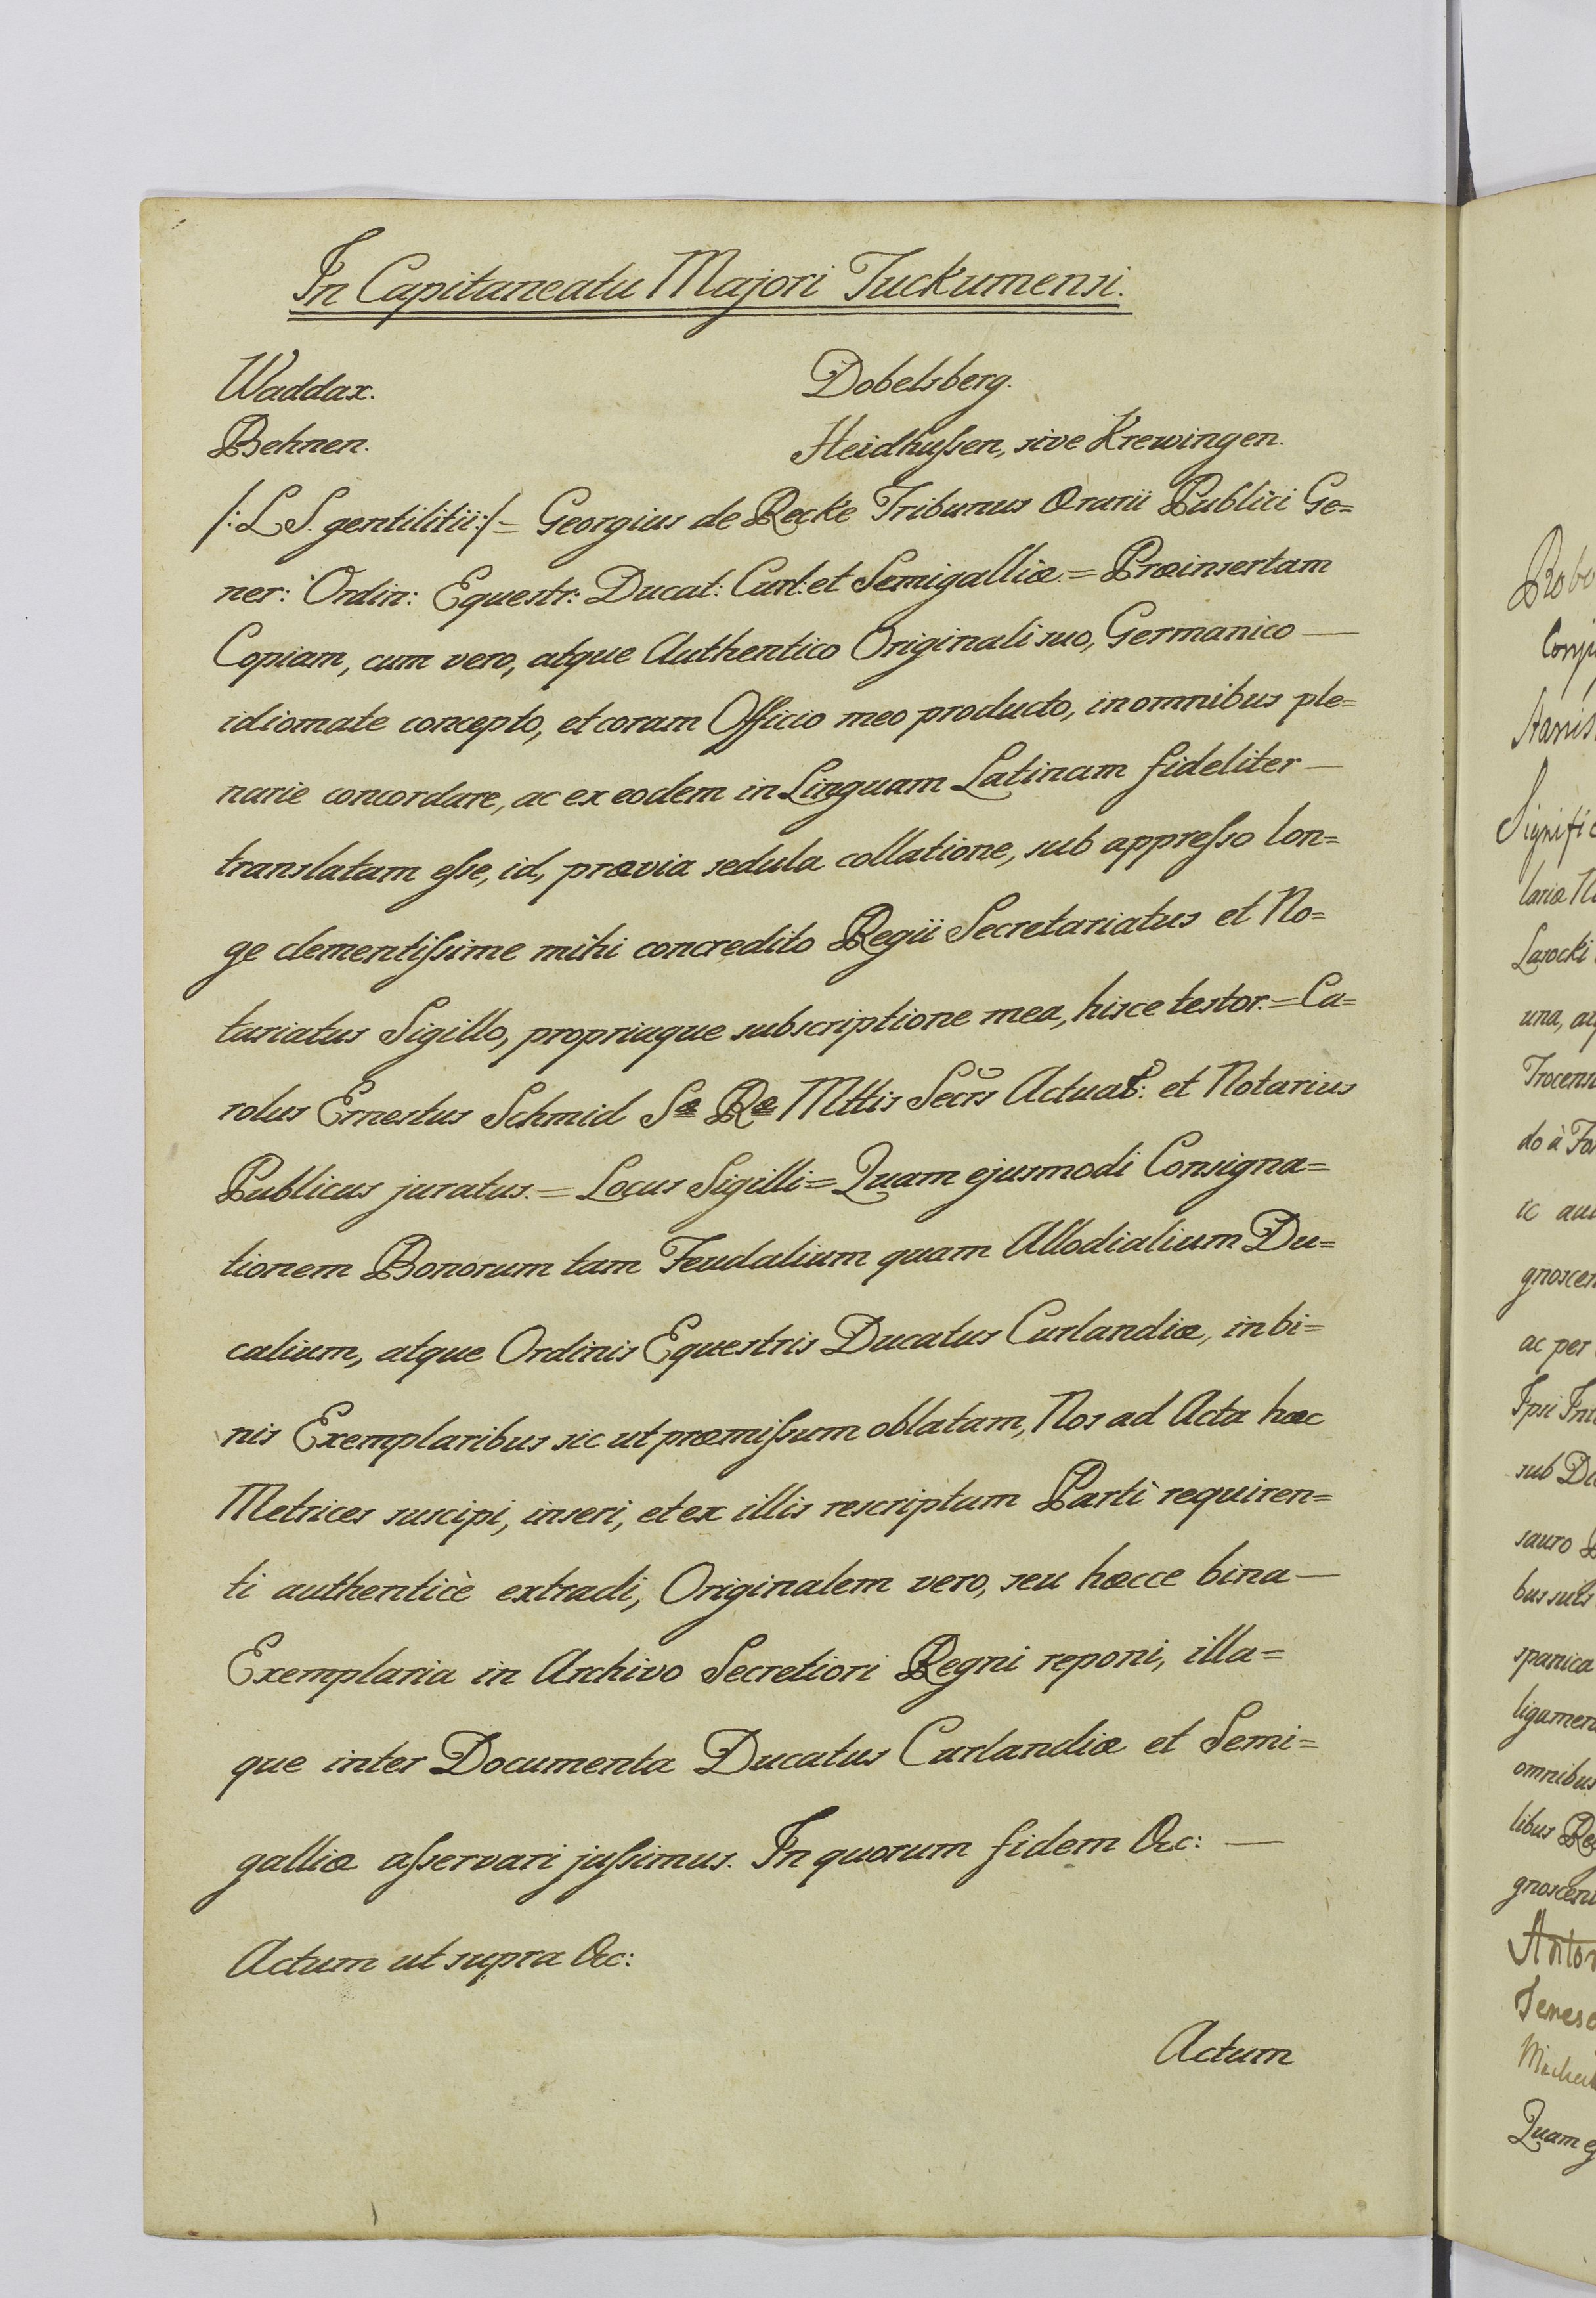 In Capitaneatu Majori Tuckumensi.
Waddax. Dobelsberg.
Behnen. Heidhußen, sive Krewingen.
/: L S. gentilitii :/ = Georgius de Recke Tribunus Ærarii Publici Ge=
ner: Ordin: Equestr: Ducat: Curl: et Semigalliæ. = Præinsertam
Copiam, cum vero, atque Authentico Originali suo, Germanico —
idiomate concepto, et coram Officio meo producto, in omnibus ple=
narie concordare, ac ex eodem in Linguam Latinam fideliter —
translatam eße, id, prævia sedula collatione, sub appreßo lon=
ge clementißime mihi concredito Regii Secretariatus et No=
tariatus Sigillo, propriaque subscriptione mea, hisce testor. = Ca=
rolus Ernestus Schmid Sæ Ræ Mttis Secrs Actuat: et Notarius
Publicus juratus. = Locus Sigilli = Quam ejusmodi Consigna=
tionem Bonorum tam Feudalium quam Allodialium Du=
calium, atque Ordinis Equestris Ducatus Curlandiæ, in bi=
nis Exemplaribus sic ut præmißum oblatam, Nos ad Acta hæc
Metrices suscipi, inseri, et ex illis rescriptum Parti requiren=
ti authenticè extradi, Originalem vero, seu hæcce bina —
Exemplaria in Archivo Secretiori Regni reponi, illa=
que inter Documenta Ducatus Curlandiæ et Semi=
galliæ aßervari jußimus. In quorum fidem &c: —
Actum ut supra &c:
Actum
Stanis
Signifi
Lasocki
una,
Trocens
gnoscen
ac per
Ipsi
sub
sauro
bus suis
spanica
ligamen
omnibus
libus Re
gnoscen
Anton
Quam e